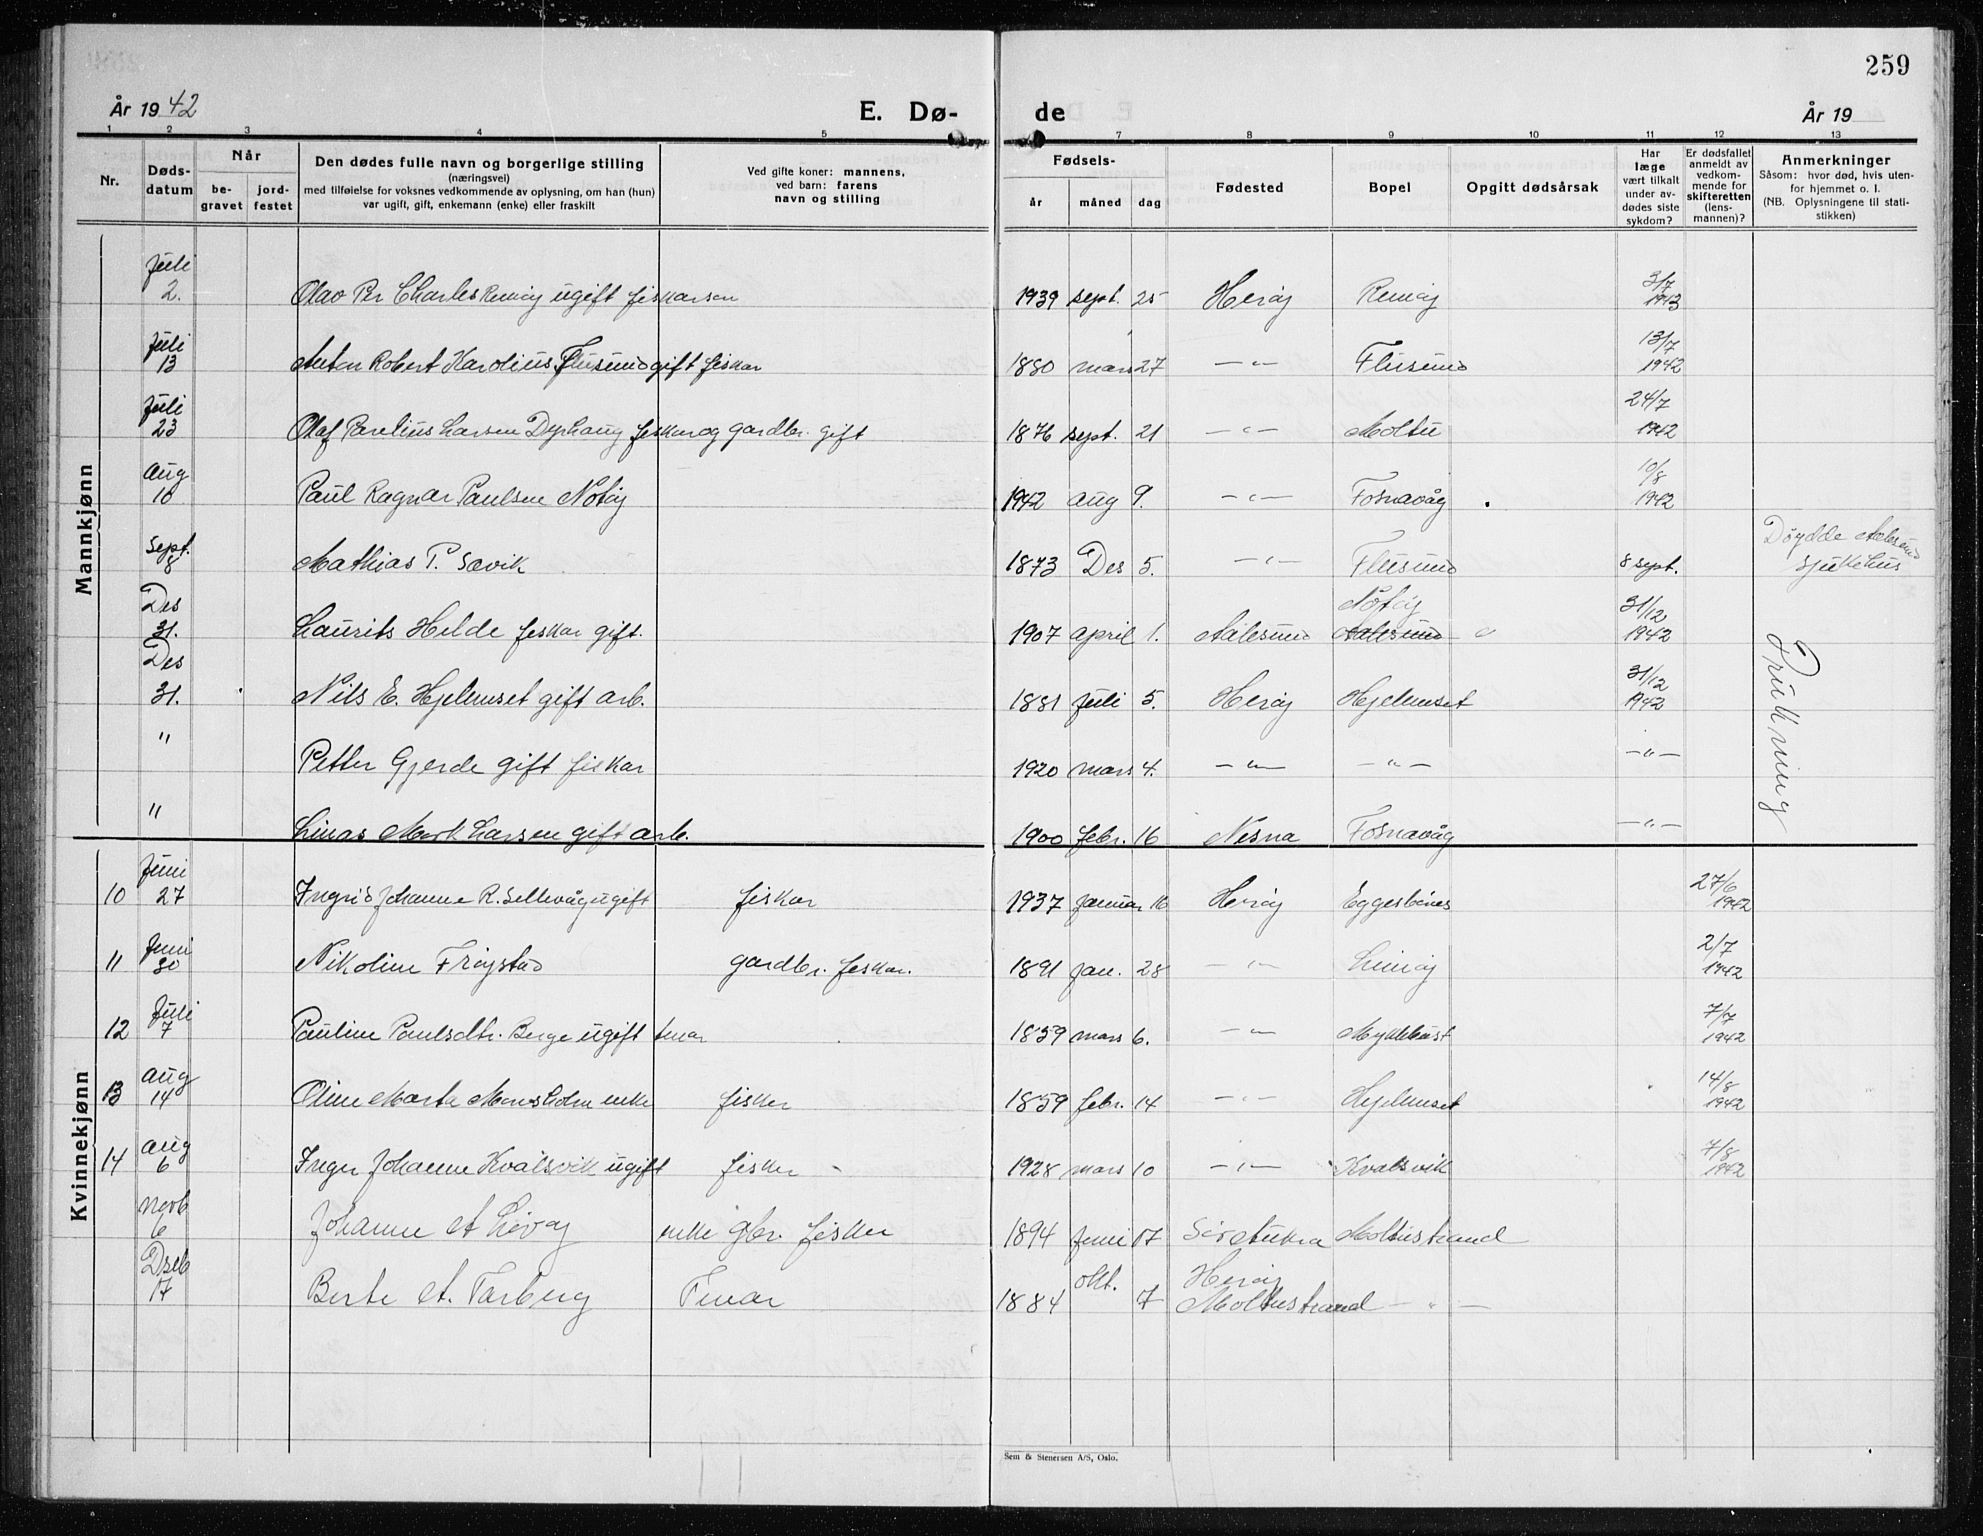 259
År 1942 E. Dø- de År 19
1 2 3 4 5 7 8 9 10 11 12 13
Nr.
Døds-
datum
Når
be-
gravet
jord-
festet
Den dødes fulle navn og borgerlige stilling
(næringsvei)
med tilføielse for voksnes vedkommende av oplysning, om han (hun)
var ugift, gift, enkemann (enke) eller fraskilt
Ved gifte koner: mannens,
ved barn: farens
navn og stilling
Fødsels-
år måned dag
Fødested
Bopel
Opgitt dødsårsak
Har
læge
vært tilkalt
under av-
dødes siste
sykdom?
Er dødsfallet
anmeldt av
vedkom-
mende for
skifteretten
(lens-
mannen)?
Anmerkninger
Såsom: hvor død, hvis uten-
for hjemmet o. l.
(NB. Oplysningene til stati-
stikken)
Mannkjønn
Juli
2. Olav Per Charles Remøy ugift fiskarson 1939 sept. 25 Herøy Remøy 3/7 1943
Juli
13 Anton Robert Karolius Flusund gift fiskar 1880 mars 27 —"— Flusund 13/7 1942
Juli
23 Olaf Parelius Larsen Dyrhaug fiskar og gardbr. gift 1876 sept. 21 —"— Moltu 24/7 1942
Aug
10 Paul Ragnar Paulsen Notøy 1942 aug 9. —"— Fosnavåg 10/8 1942
Sept.
8 Mathias P. Sævik 1873 Des 5. —"— Flusund 8 sept. Døydde Aalesund sjukehus
Des
31. Laurits Helde fiskar gift. 1907 april 1. Aalesund Nøtøy Aalesund 31/12 1942
Des
31. Nils E. Hjelmeset gift arb. 1881 Juli 5. Herøy Hjelmeset 31/12 1942
" Petter Gjerde gift fiskar 1920 mars 4. —"— —"— —"—
" Linas Mork Larsen gift arb. 1900 febr. 16 Nesna Fosnavåg —"—
Drukning
Kvinnekjønn
Juni
10 27 Ingrid Johanne R. Sellevåg ugift fiskar 1937 Januar 16 Herøy Eggesbønes 27/6 1942
Juni
11 30 Nikoline Frøystad gardbr. fiskar. 1891 jan. 28 —"— Leinøy 2/7 1942
Juli
12 7 Pauline Paulsdtr. Berge ugift tenar 1859 mars 6. —"— Myklebust 7/7 1942
Aug
13 14 Oline Marta Moresholm enke fisker 1859 febr. 14 —"— Hjelmeset 14/8 1942
Aug
14 6 Inger Johanne Kvalsvik ugift fisker 1928 mars 10 —"— Kvalsvik 7/8 1942
Novb
6 Johanne A Levøy enke gbr. fisker 1894 Juni 17 Moltustrand
Dseb
17 Berte A. Tarberg Tenar 1884 okt. 7 Herøy Moltustrand —"—
Sem & Stenersen A/S, Oslo.